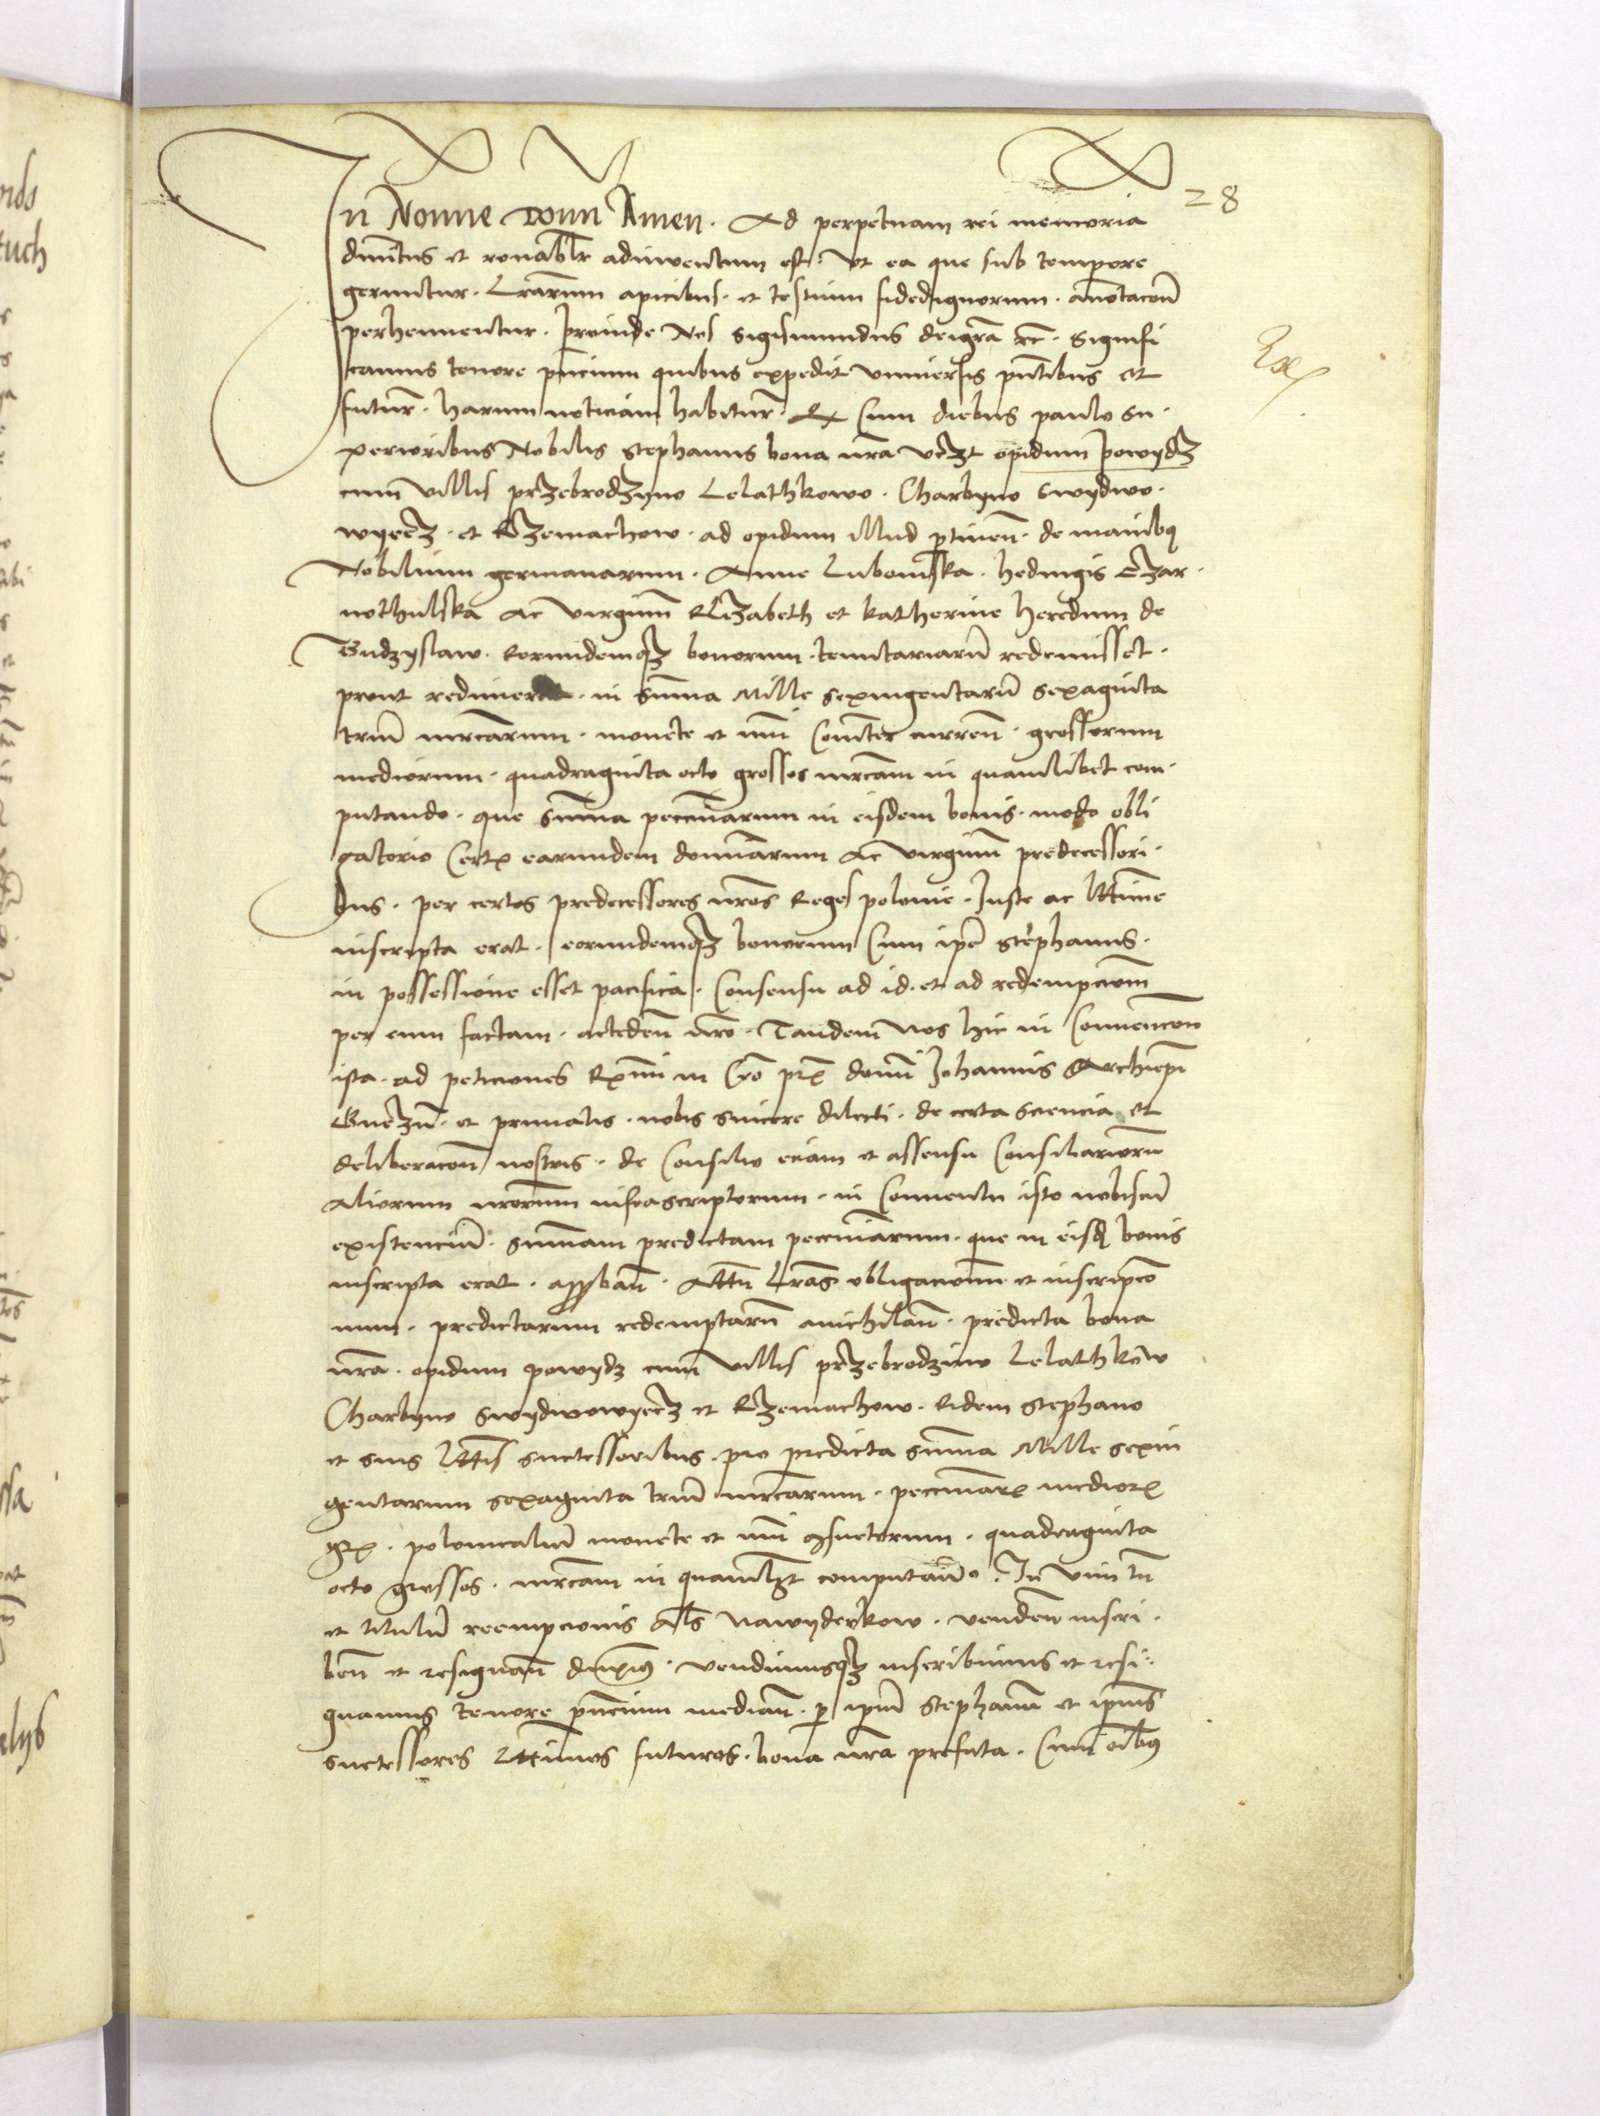 28
In Nomine Domini Amen. Ad perpetuam rei memoria
divinitus et ronabilr adinventum est. Ut ea que sub tempore
geruntur. Lrarum apicibus. et testium fidedignorum. annotacōn
perhennentur. Proinde Nos Sigismundus deigra etc. Signifi
camus tenore pñcium quibus expedit universis pñtibus et
futur. harum noticiam habitur. Q Cum diebus paulo su.
perioribus Nobilis Stephanus bona nra videlzt opidum Powydz
cum villis Przebrodzyno Lelathkowo. Charbyno Swydwo.
wyecz. et Rzemachow. ad opidum illud ptinen. de manibus
Nobilium germanarum. Anne Lubomska. Hedwigis Czar.
nothulska Ac Virginum Elizabeth et Katherine Heredum de
Gudzyslaw. Eorundemqz bonorum. tenutariarum redemisset.
prout redimerat. in summa Mille sexingentarum sexaginta
trium mrcarum. monete et nūi Comuniter curren. grossorum
mediorum. quadraginta octo grossos mrcam in quamlibet com.
putando. que summa pecuniarum in eisdem bonis. modo obli
gatorio Certis earundem dominarum Ac virginum predecessori.
bus. per certos predecessores nros Reges polonie. Juste ac lttime
inscripta erat. eorundemqz bonorum Cum ipse Stephanus.
in possessione esset pacifica. Consensu ad id. et ad redempcionem
per eum factam. acceden nro. Tandem Nos hic in Convencion
ista. ad peticiones Rmi in Cro pris domini Johannis Archiepi
Gneznen. et primatis. nobis sincere dilecti. de certa sciencia et
deliberacon nostris. de Consilio eciam et assensu Consiliariorum
Aliorum nrorum infrascriptorum. in Conventu isto nobiscum
existencium. summam predictam pecuniarum. que in eisdem bonis
inscripta erat. approban. Attn Lras obligacionum et inscripcio
num. predictarum redemptarum anichilan. predicta bona
nra. opidum Powydz cum villis Przebrodzino Lelathkow
Charbyno Swydwowyecz et Rzemachow. Eidem Stephano
et suis lttis successoribus. pro predicta summa Mille sexin
gentarum sexaginta trium mrcarum. pecuniar. medior.
gr. polonicalium monete et nūi cosuetorum. quadraginta
octo grossos. mrcam in quamlzt computando. In vim tn
et titulum reempcionis Als Nawyderkow. venden inscri.
ben et resignan duximus. vendimusqz inscribimus et resi.
gnamus tenore pñcium median. p ipsum Stephanum et ipsius
successores lttimos futuros. bona nra prefata. Cum oibus